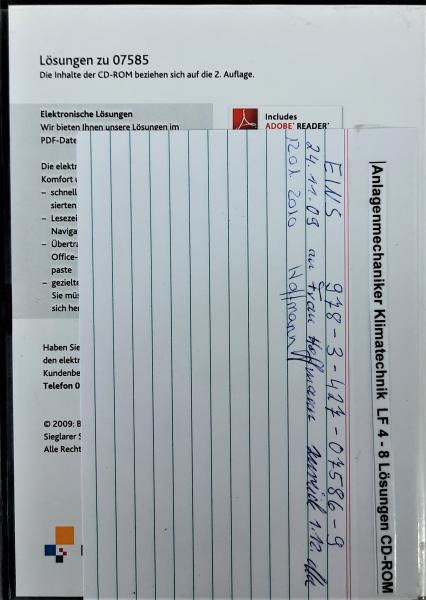 Lösungen zu 07585
Die Inhalte der CD-ROM beziehen sich auf die 2. Auflage.
Elektronische Lösungen
Wir bieten Ihnen unsere Lösungen im
PDF-Date
Includes
ADOBE® READER®
Die elektr
Komfort
– schnell
sierten
– Lesezei
Naviga
– Übertra
Office-
paste
– gezielte
Sie müs
sich her
Haben Sie
den elektr
Kundenbe
Telefon 0
© 2009: B
Sieglarer S
Alle Recht
Anlagenmechaniker Klimatechnik LF 4 - 8 Lösungen CD-ROM
EINS 978-3-427-07586-9
24.11.09 an Frau Hoffmann zurück 1.12.
12.01.2010 Hoffmann